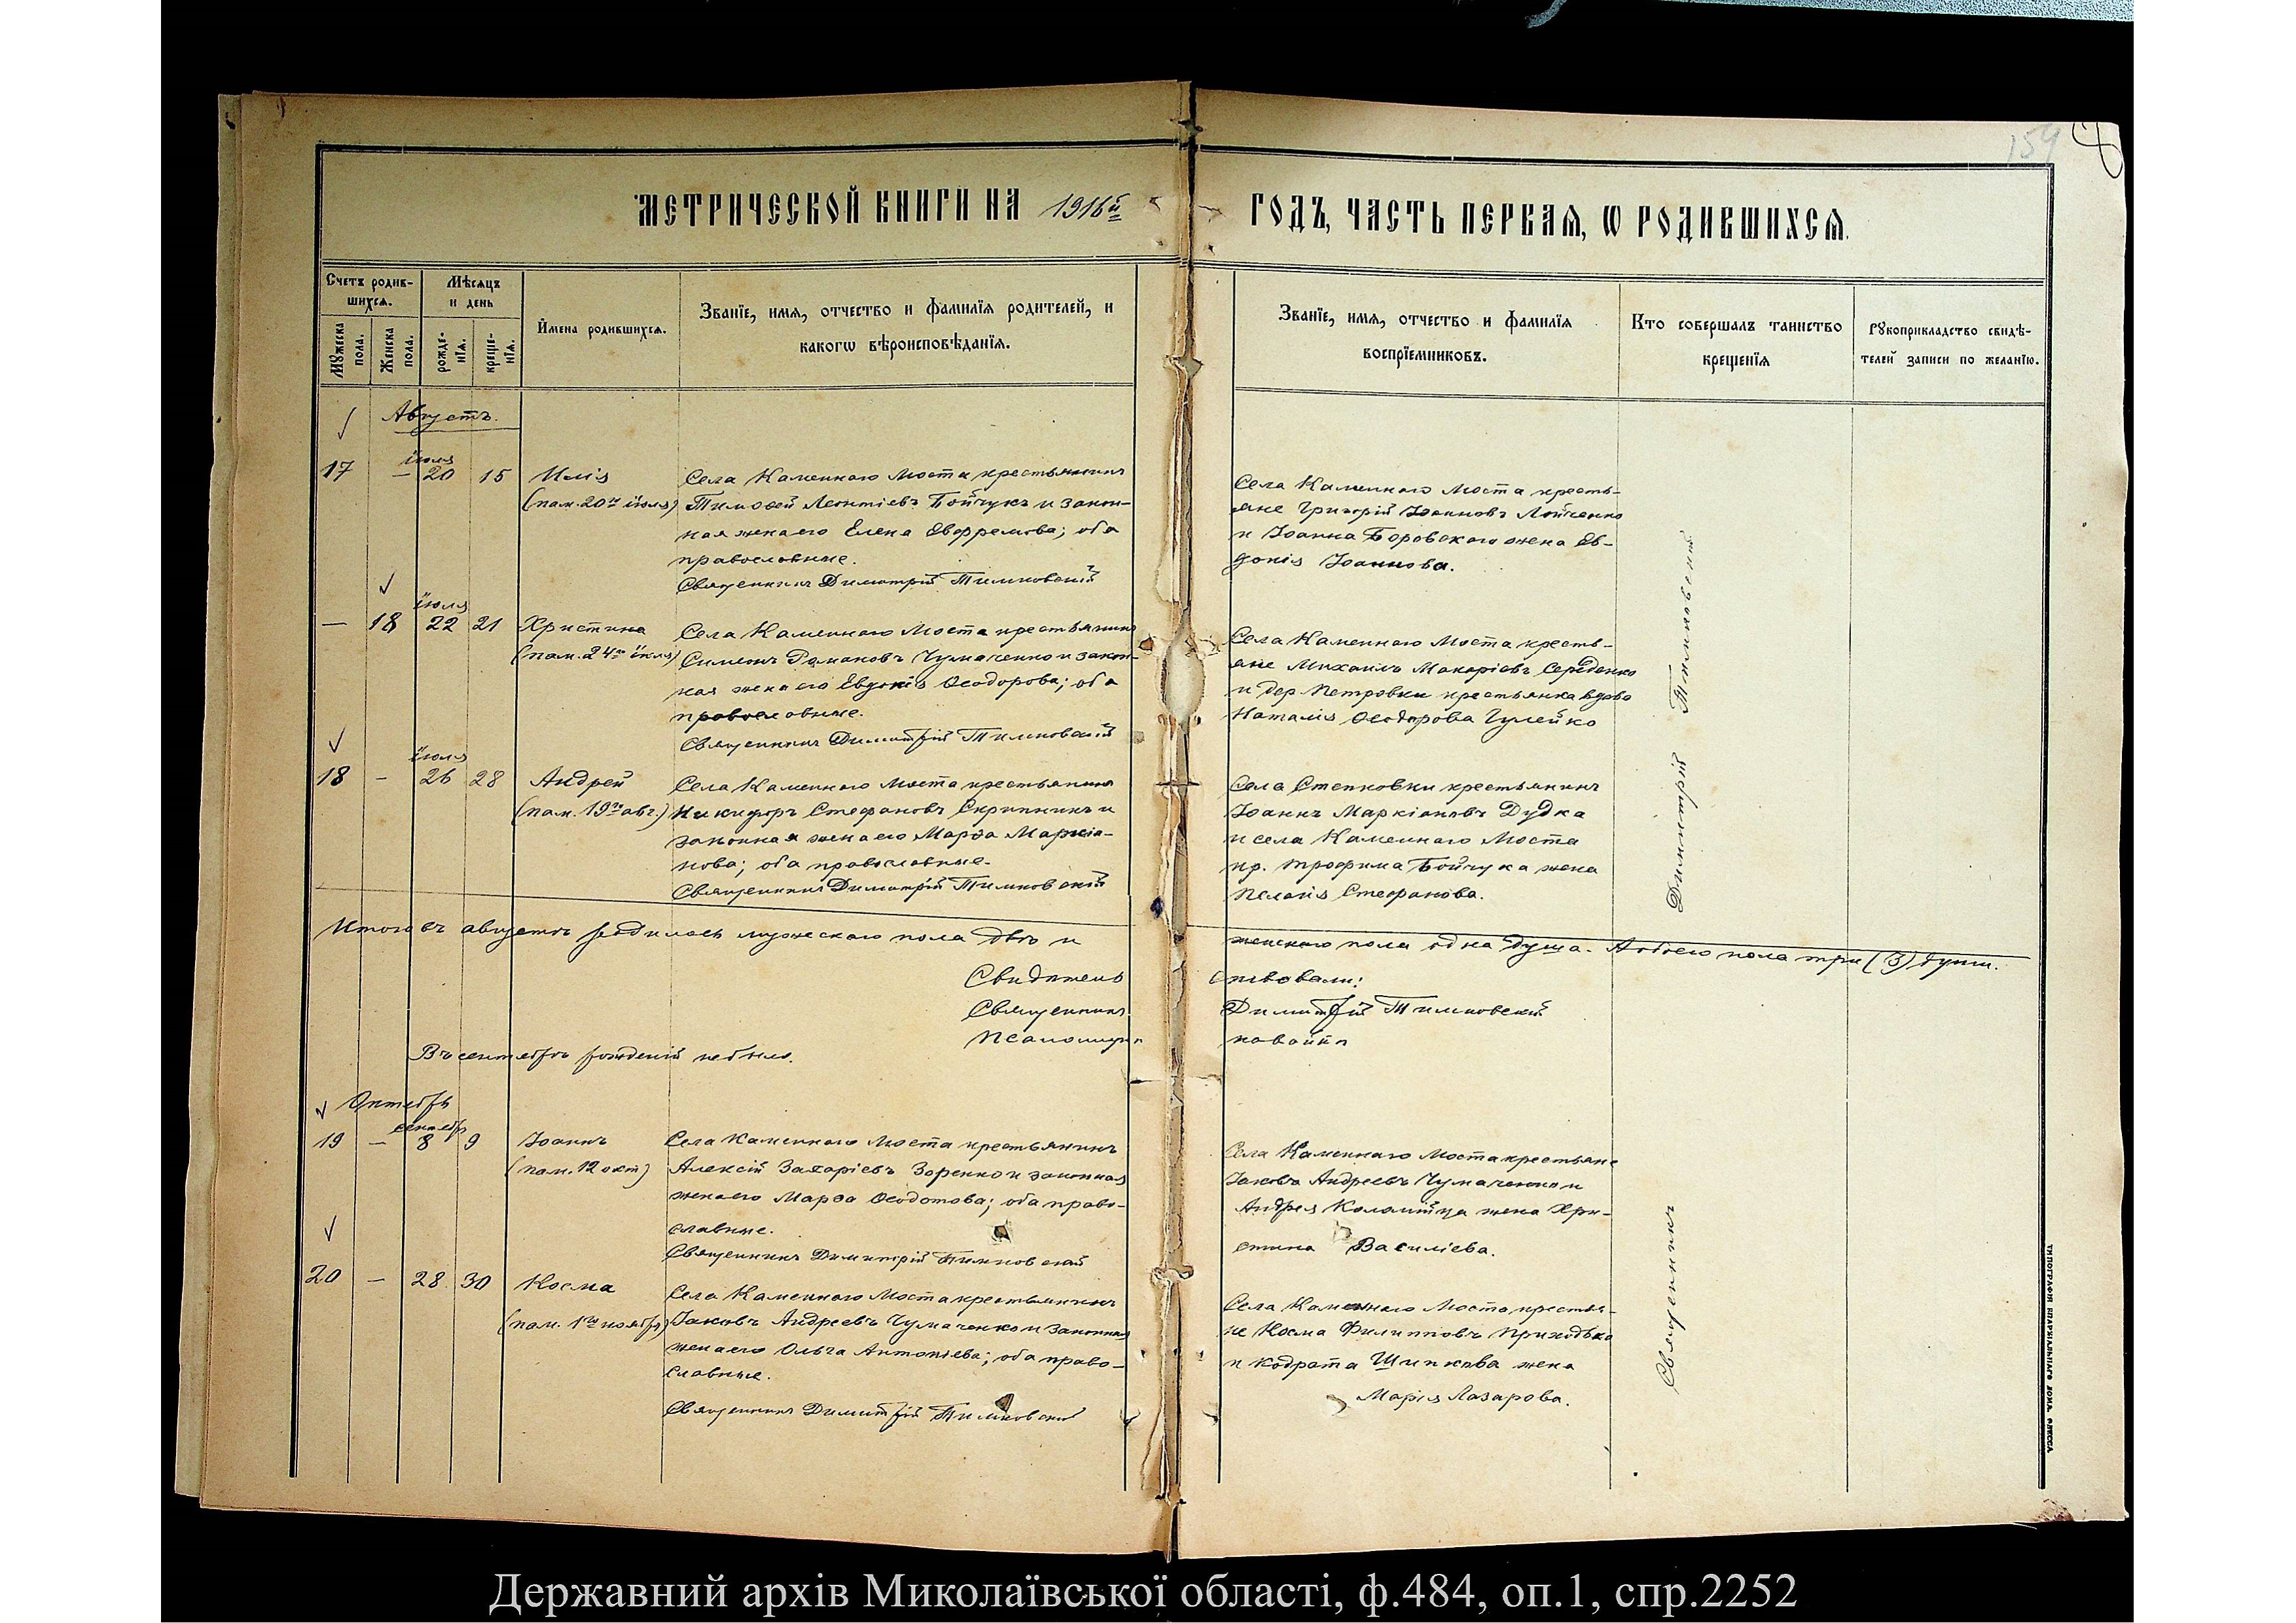 159
МЕТРИЧЕСКОЙ КНИГИ НА 1916й ГОДЪ, ЧАСТЬ ПЕРВАЯ, Ѡ РОДИВШИХСЯ.
Счетъ родив-
шихся.
Мѣсяцъ
и день
Мужеска
пола.
Женска
пола.
рожде-
нїя.
креще-
нїя.
Имена родившихся.
Званїе, имя, отчество и фамилїя родителей, и
какогѡ вѣроисповѣданїя.
Званїе, имя, отчество и фамилїя
воспрїемниковъ.
Кто совершалъ таинство
крещенїя
Рукоприкладство свидѣ-
телей записи по желанїю.
Августъ.
іюля
17 — 20 15 Илія
(пам. 20го іюля)
Села Каменнаго Моста крестьянинъ
Тимоѳей Леонтіевъ Бойчукъ и закон-
ная жена его Елена Евфремова; оба
православные.
Священникъ Димитрій Тимковскій
Села Каменнаго Моста кресть-
яне Григорій Іоанновъ Лойченко
и Іоанна Боровскаго жена Ев-
докія Іоаннова.
іюля
— 18 22 21 Христина
(пам. 24го іюля)
Села Каменнаго Моста крестьянинъ
Симеонъ Романовъ Чумаченко и закон-
ная жена его Евдокія Ѳеодорова; оба
православные.
Священникъ Димитрій Тимковскій
Села Каменнаго Моста кресть-
яне Михаилъ Макаріевъ Середенко
и дер. Петровки крестьянка вдова
Наталія Ѳеодорова Гулейко
іюля
18 — 26 28 Андрей
(пам. 19го авг.)
Села Каменнаго Моста крестьянинъ
Никифоръ Стефановъ Скрипникъ и
законная жена его Марѳа Маркіа-
нова; оба православные.
Священникъ Димитрій Тимковскій
Села Степковки крестьянинъ
Іоаннъ Маркіановъ Дудка
и села Каменнаго Моста
кр. Трофима Бойчука жена
Пелагія Стефанова.
Итого въ августѣ родилось мужескаго пола двѣ и женскаго пола одна душа. А обоего пола три (3) души.
Свидѣтельствовали:
Священникъ Димитрій Тимковскій
Псаломщикъ
Въ сентябрѣ рожденій не было.
Октябрь
сентябр
19 — 8 9 Іоаннъ
(пам. 12 окт)
Села Каменнаго Моста крестьянинъ
Алексій Захаріевъ Зоренко и законная
жена его Марѳа Ѳеодотова; оба право-
славные.
Священникъ Димитрій Тимковскій
Села Каменнаго Моста крестьяне
Іаковъ Андреевъ Чумаченко и
Андрея Коломійца жена Хри-
стина Василіева.
20 — 28 30 Косма
(пам. 1го ноября)
Села Каменнаго Моста крестьянинъ
Іаковъ Андреевъ Чумаченко и законная
жена его Ольга Антоніева; оба право-
славные.
Священникъ Димитрій Тимковскій
Села Каменнаго Моста крестья-
не Косма Филипповъ Приходько
и Кодрата Шипкова жена
Марія Лазарова.
Священникъ Димитрій Тимковскій
ТИПОГРАФІЯ ЕПАРХІАЛЬНАГО ДОМА, ОДЕССА
Державний архів Миколаївської області, ф.484, оп.1, спр.2252